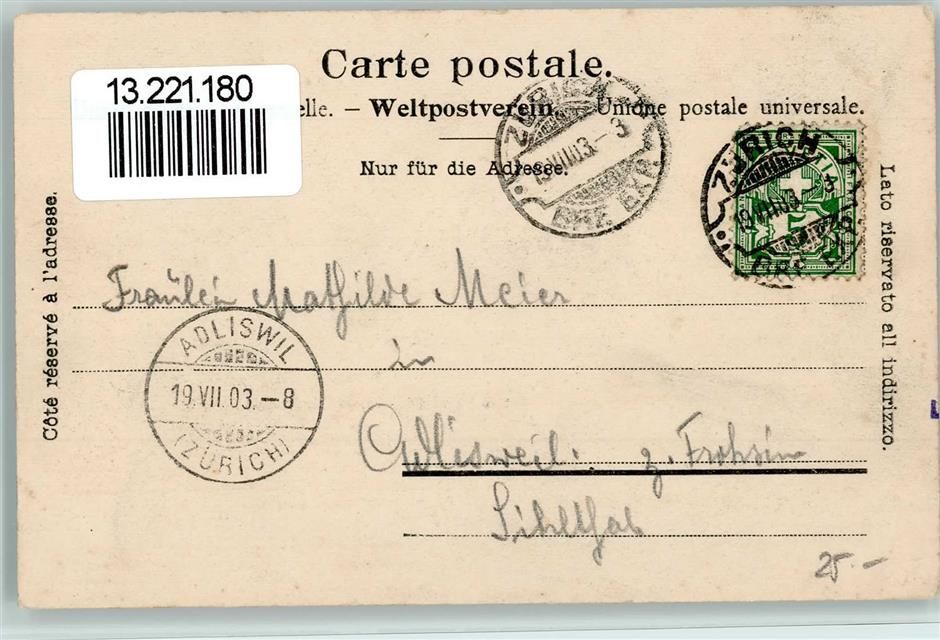 Carte postale.
13.221.180
elle. – Weltpostverein. – Unione postale universale.
Nur für die Adresse.
ZÜRICH
19.VII.03.–3
BRF. EXP.
ZÜRICH
19.VII.03.
Côté réservé à l'adresse.
Lato riservato all indirizzo.
Fräulein Mathilde Meier
in
ADLISWIL
19.VII.03.–8
(ZÜRICH)
Adlisweil. z. Frohsin
Sihlthal
25.–